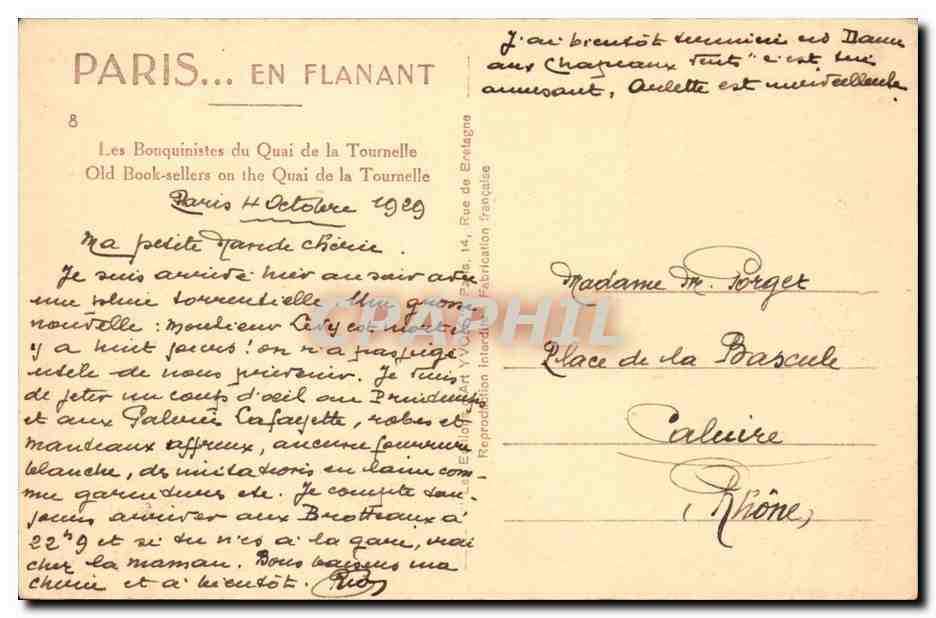 PARIS... EN FLANANT
8
Les Bouquinistes du Quai de la Tournelle
Old Book-sellers on the Quai de la Tournelle
Paris 4 Octobre 1929
Ma petite chérie.
Je suis arrivé hier au soir avec
une pluie torrentielle. Une grosse
nouvelle : Monsieur Lévy est mort il
y a huit jours ! on n'a pas jugé
utile de nous prévenir. Je viens
de jeter un coup d'oeil au Printemps
et aux Galeries Lafayette, robes et
manteaux affreux, aucune fourrure
blanche, des imitations en laine com-
me garnitures etc. Je compte tou-
jours arriver aux Brotteaux à
22h9 et si tu n'es à la gare, vrai
chez la maman. Bons baisers ma
chérie et à bientôt.
J'ai bientôt terminé
aux Chapeaux Verts" c'est
amusant, est merveilleuse.
Les Editions d'Art YVON, Paris, 14, Rue de Bretagne
Reproduction Interdite. Fabrication française
CPAPHIL
Madame M. Porget
Place de la Bascule
Caluire
(Rhône)